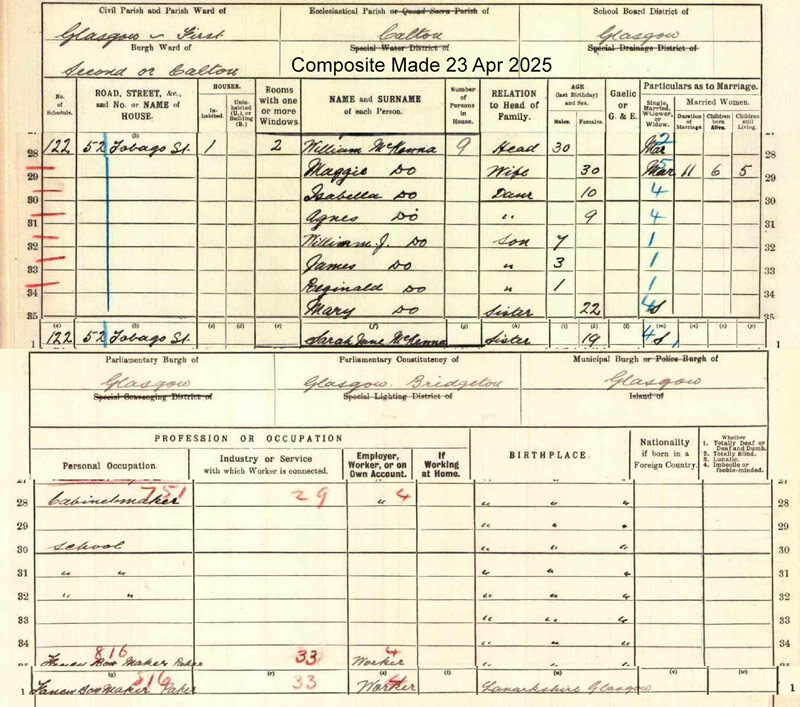 Civil Parish and Parish Ward of Ecclesiastical Parish or Quoad Sacra Parish of School Board District of
Glasgow ~ First Calton Glasgow
Burgh Ward of Special Water District of Special Drainage District of
Second or Calton Composite Made 23 Apr 2025
No. of Schedule. ROAD, STREET, &c., and No. or NAME of HOUSE. HOUSES. Inhabited. Uninhabited (U.), or Building (B.) Rooms with one or more Windows NAME and SURNAME of each Person. Number of Persons in House. RELATION to Head of Family. AGE (last Birthday) and Sex. Males. Females. Gaelic or G. & E. Particulars as to Marriage. Single, Married, Widower, or Widow. Married Women. Duration of Marriage. Children born Alive. Children still Living.
28 122 52 Tobago St. 1 2 William McKenna 9 Head 30 Mar 2 28
29 Maggie Do Wife 30 Mar 5 11 6 5 29
30 Isabella Do Daur 10 4 30
31 Agnes Do " 9 4 31
32 William J. Do Son 7 1 32
33 James Do " 3 1 33
34 Reginald Do " 1 1 34
35 Mary Do Sister 22 4 S 35
(a) (b) (c) (d) (e) (f) (g) (h) (i) (k) (l) (m) (n) (o) (p)
1 122 52 Tobago St. Sarah Jane McKenna Sister 19 4 S 1
Parliamentary Burgh of Parliamentary Constitutency of Municipal Burgh or Police Burgh of
Glasgow Glasgow Bridgeton Glasgow
Special Scavenging District of Special Lighting District of Island of
PROFESSION OR OCCUPATION BIRTHPLACE. Nationality if born in a Foreign Country. Whether 1. Totally Deaf or Deaf and Dumb. 2. Totally Blind. 3. Lunatic. 4. Imbecile or feeble-minded.
Personal Occupation. Industry or Service with which Worker is connected. Employer, Worker, or on Own Account. If Working at Home.
28 Cabinetmaker 751 29 " 4 " " " 28
29 " " " 29
30 School " " " 30
31 " " " " " 31
32 " " " " " 32
33 " " " 33
34 " " " 34
Fancy Box Maker Paper 816 33 Worker 4 " " "
1 Fancy Box Maker Paper 816 33 Worker 4 Lanarkshire Glasgow 1